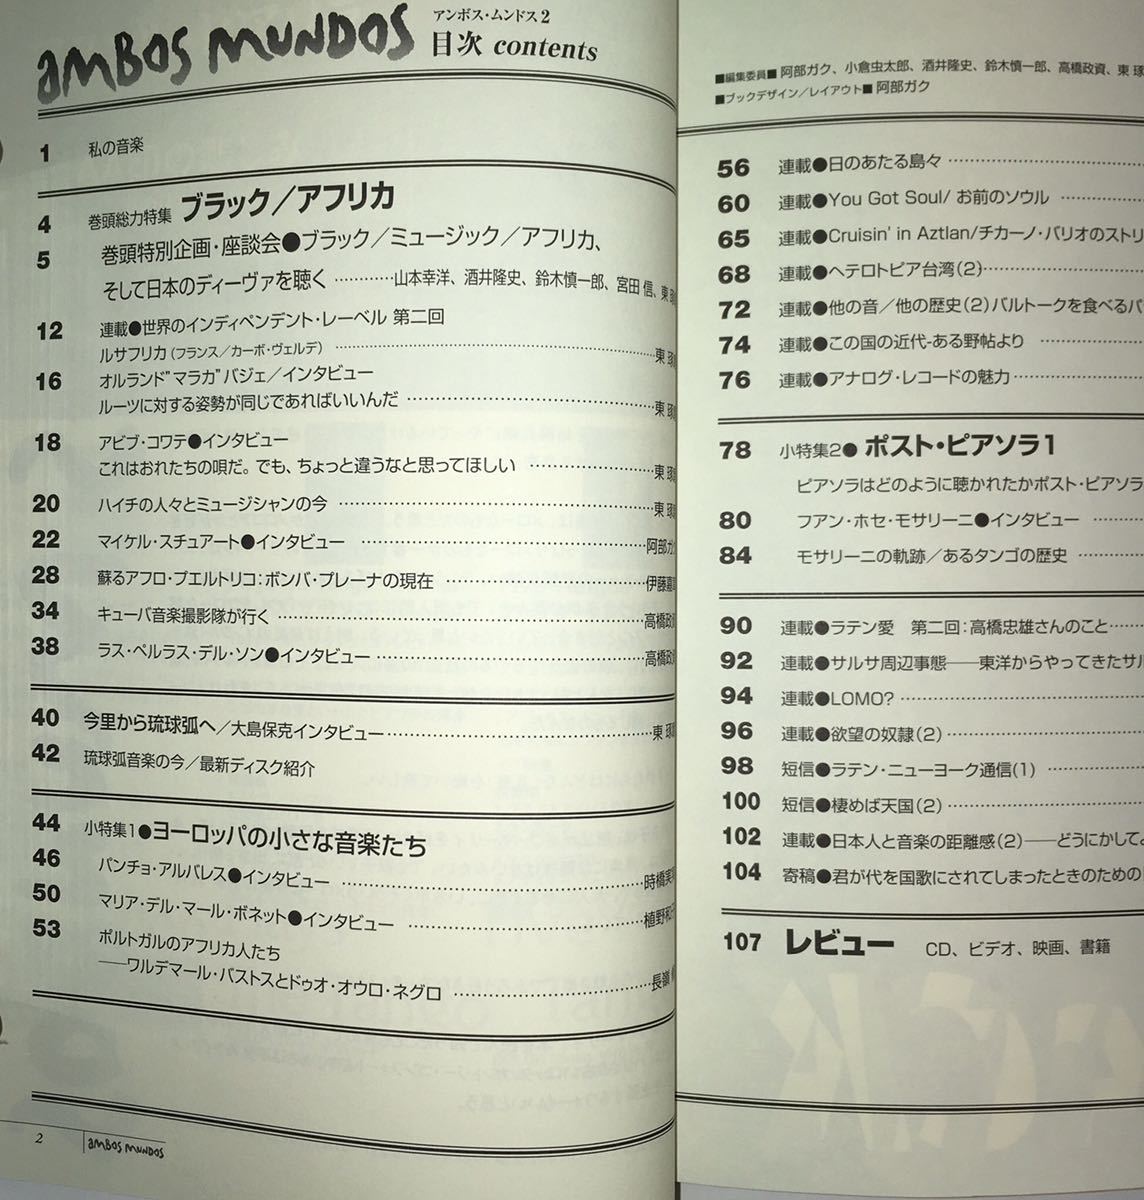 AMBOS MUNDOS
アンボス・ムンドス2
目次 contents
1 私の音楽
4 巻頭総力特集 ブラック／アフリカ
5 巻頭特別企画・座談会●ブラック／ミュージック／アフリカ、
そして日本のディーヴァを聴く …………山本幸洋、酒井隆史、鈴木慎一郎、宮田 信、東
12 連載●世界のインディペンデント・レーベル 第二回
ルサフリカ（フランス／カーボ・ヴェルデ）……東
16 オルランド"マラカ"バジェ／インタビュー
ルーツに対する姿勢が同じであればいいんだ……東
18 アビブ・コワテ●インタビュー
これはおれたちの唄だ。でも、ちょっと違うなと思ってほしい……東
20 ハイチの人々とミュージシャンの今……東
22 マイケル・スチュアート●インタビュー……阿部ガ
28 蘇るアフロ・プエルトリコ：ボンバ・プレーナの現在……伊藤嘉
34 キューバ音楽撮影隊が行く……高橋政
38 ラス・ペルラス・デル・ソン●インタビュー……高橋政
40 今里から琉球弧へ／大島保克インタビュー……東
42 琉球弧音楽の今／最新ディスク紹介
44 小特集1●ヨーロッパの小さな音楽たち
46 パンチョ・アルバレス●インタビュー……時橋実
50 マリア・デル・マール・ボネット●インタビュー……植野和
53 ポルトガルのアフリカ人たち
――ワルデマール・バストスとドゥオ・オウロ・ネグロ……長嶺
2 AMBOS MUNDOS
■編集委員■ 阿部ガク、小倉虫太郎、酒井隆史、鈴木慎一郎、高橋政資、東 琢
■ブックデザイン／レイアウト■ 阿部ガク
56 連載●日のあたる島々……
60 連載●You Got Soul/ お前のソウル……
65 連載●Cruisin' in Aztlan/チカーノ・バリオのストリ
68 連載●ヘテロトピア台湾(2)……
72 連載●他の音／他の歴史(2)バルトークを食べるバ
74 連載●この国の近代-ある野帖より……
76 連載●アナログ・レコードの魅力……
78 小特集2● ポスト・ピアソラ1
ピアソラはどのように聴かれたかポスト・ピアソラ
80 フアン・ホセ・モサリーニ●インタビュー……
84 モサリーニの軌跡／あるタンゴの歴史……
90 連載●ラテン愛 第二回：高橋忠雄さんのこと……
92 連載●サルサ周辺事態――東洋からやってきたサル
94 連載●LOMO?……
96 連載●欲望の奴隷(2)……
98 短信●ラテン・ニューヨーク通信(1)……
100 短信●棲めば天国(2)……
102 連載●日本人と音楽の距離感(2)――どうにかして
104 寄稿●君が代を国歌にされてしまったときのための
107 レビュー CD、ビデオ、映画、書籍